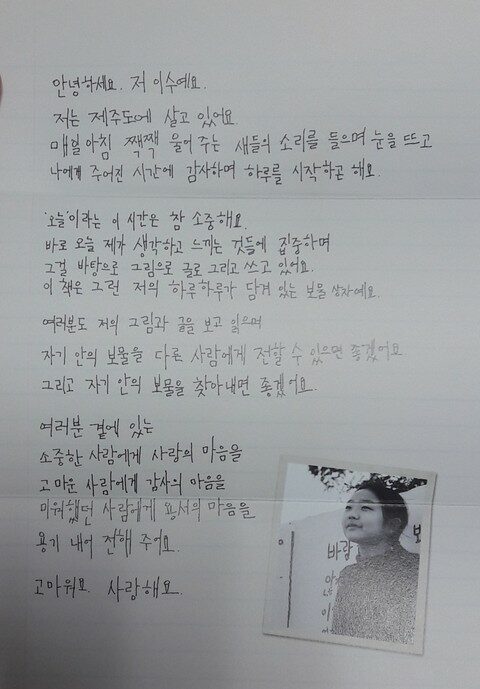 안녕하세요. 저 이수예요.
저는 제주도에 살고 있어요
매일 아침 짹짹 울어 주는 새들의 소리를 들으며 눈을 뜨고
나에게 주어진 시간에 감사하며 하루를 시작하곤 해요.
'오늘'이라는 이 시간은 참 소중해요.
바로 오늘 제가 생각하고 느끼는 것들에 집중하며
그걸 바탕으로 그림으로 글로 그리고 쓰고 있어요.
이 책은 그런 저의 하루하루가 담겨 있는 보물 상자예요.
여러분도 저의 그림과 글을 보고 읽으며
자기 안의 보물을 다른 사람에게 전할 수 있으면 좋겠어요
그리고 자기 안의 보물을 찾아내면 좋겠어요.
여러분 곁에 있는
소중한 사람에게 사랑의 마음을
고마운 사람에게 감사의 마음을
미워했던 사람에게 용서의 마음을
용기 내어 전해 주어요.
고마워요. 사랑해요.
바람